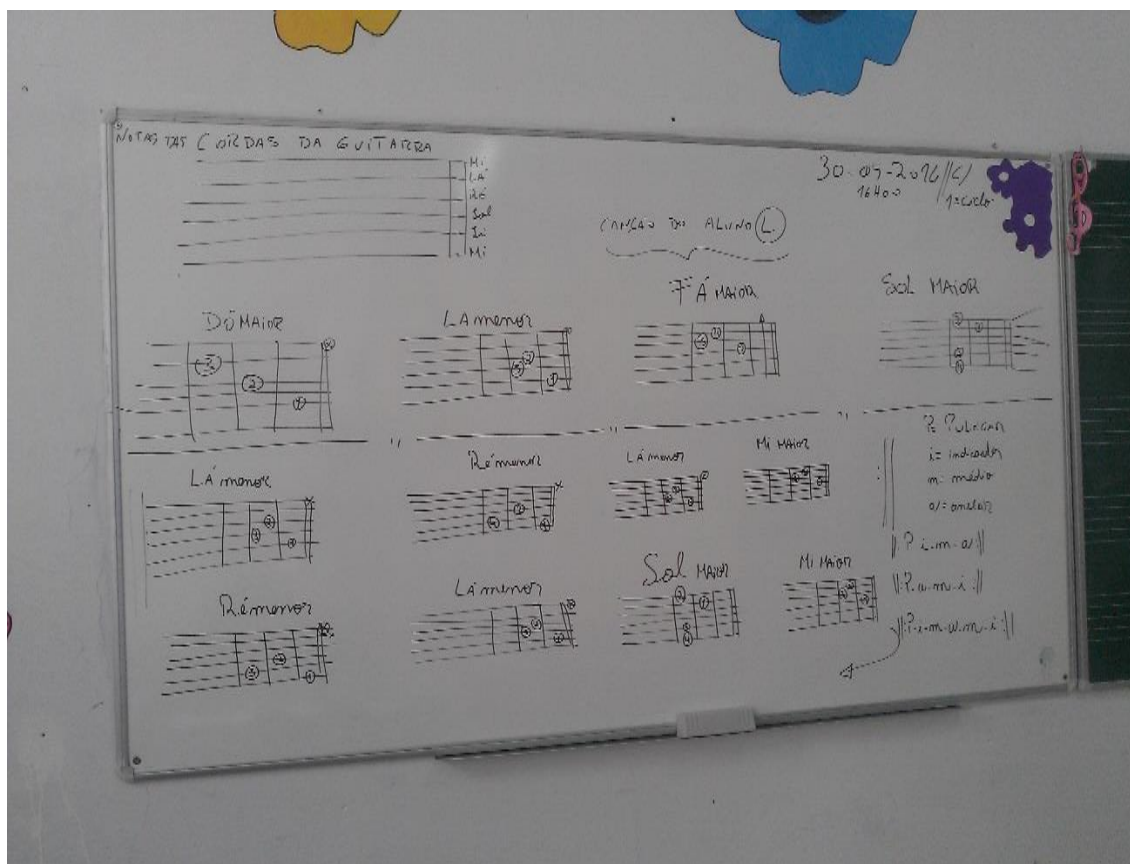 NOTAS DAS CORDAS DA GUITARRA
Mi
LÁ
RÉ
Sol
Si
Mi
16h00
1º ciclo
CANÇÃO DO ALUNO L.
DÓ MAIOR
LÁ menor
FÁ MAIOR
SOL MAIOR
LÁ menor
Ré menor
LÁ menor
Mi MAIOR
P= Pulegar
i= indicador
m= médio
a= anelar
Ré menor
LÁ menor
Sol MAIOR
Mi MAIOR
||: P-i-m-a :||
||: P-a-m-i :||
||: P-i-m-a-m-i :||